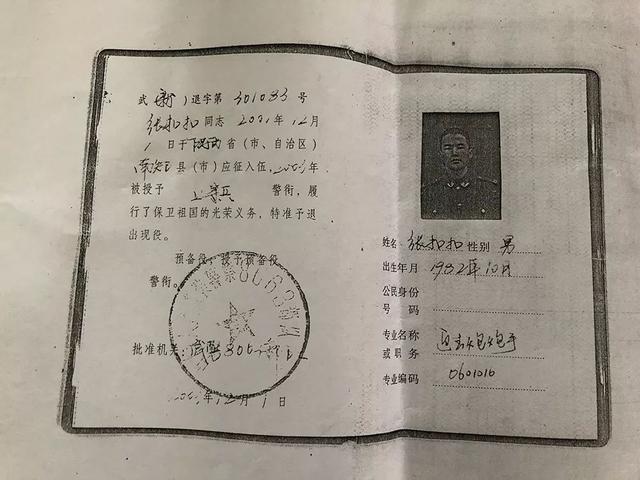 武(新)退字第301033号
张扣扣同志2001年12月
1日于陕西省(市、自治区)
南郑县(市)应征入伍,2003年
被授予上等兵警衔,履
行了保卫祖国的光荣义务,特准予退
出现役。
预备役:授予预备役
警衔。
批准机关:
2003年12月1日
姓名张扣扣性别男
出生年月1982年10月
公民身份
号码
专业名称
或职务迫击炮炮手
专业编码0601010